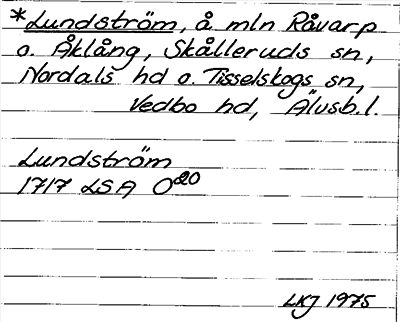 *Lundström, å mln Råvarp
o. Åklång, Skålleruds sn,
Nordals hd o. Tisselskogs sn,
Vedbo hd, Älvsb. l.
Lundström
1717 LSA O 20
LKJ 1975